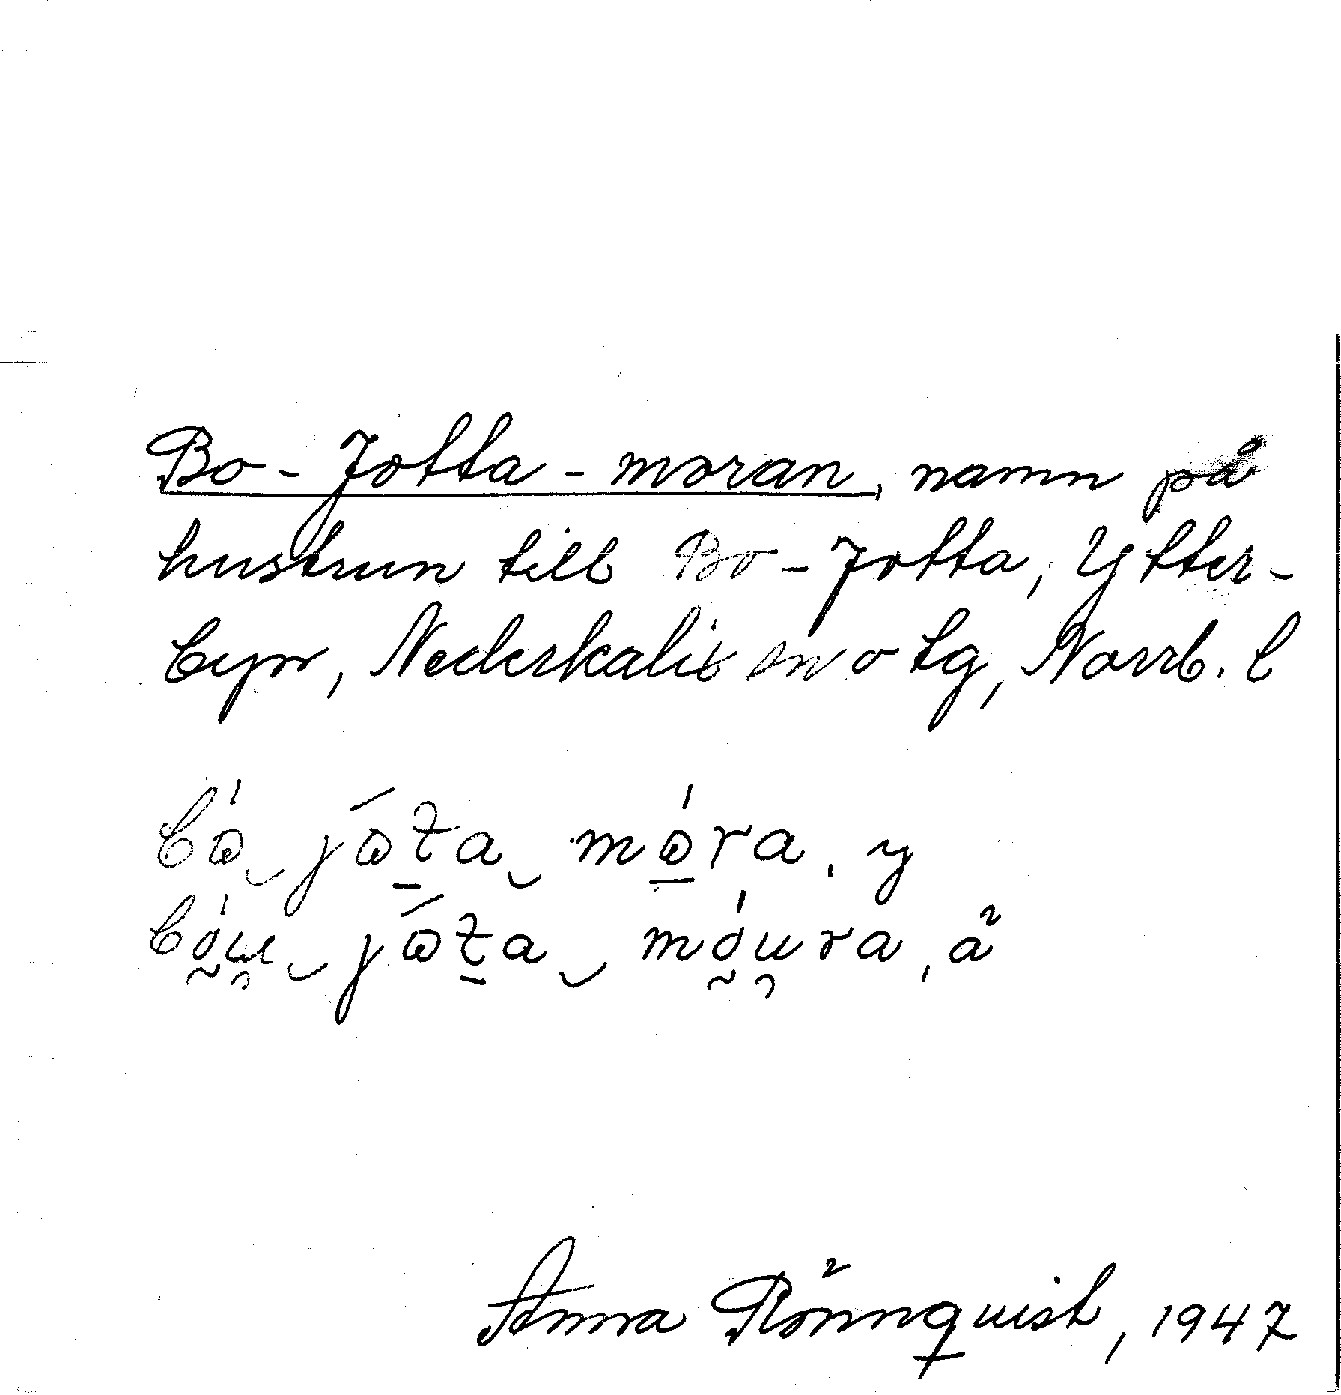 Bo-Jotta-moran, namn på
hustrun till Bo-Jotta, Ytter-
byn, Nederkalix sn o tg, Norrb. l
bò̩ jóta mòra, y
bóu jóta móura, ä
Anna Rönnquist, 1947